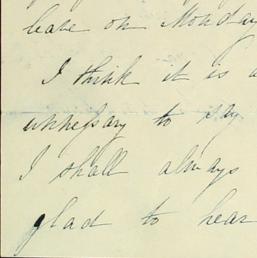 leave on Monday
I think it is a
unnessary to say
I shall always
glad to hear